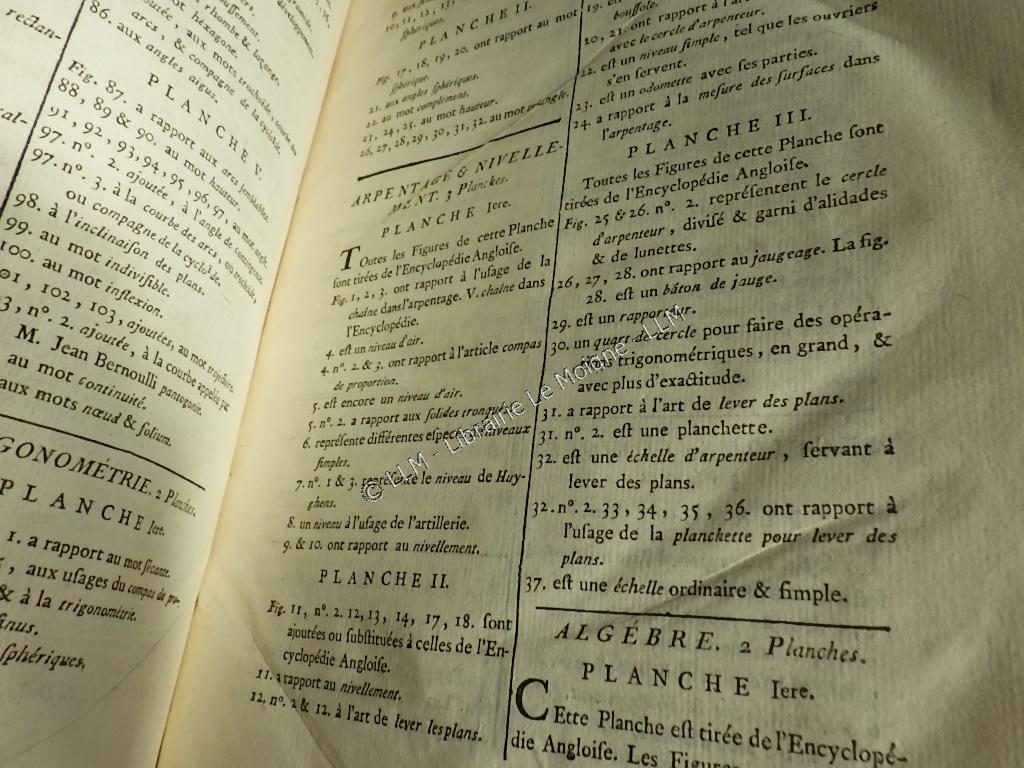 86. aux arcs, & compagne de la cycloïde.
aux angles aigus.
PLANCHE V.
Fig. 87. a rapport aux arcs semblables.
88, 89 & 90. au mot hauteur.
91, 92, 93, 94, 95, 96, 97, au mot angle.
97. nº. 2. ajoutée, à l'angle de contingence.
97. nº. 3. à la courbe des arcs, ou trochoïde,
ou compagne de la cycloïde.
98. à l'inclinaison des plans.
99. au mot indivisible.
100. au mot inflexion.
101, 102, 103, ajoutées, au mot trajectoire.
3, nº. 2. ajoutée, à la courbe appelée par
M. Jean Bernoulli pantogonie.
au mot continuité.
aux mots nœud & folium.
GONOMÉTRIE. 2 Planches.
PLANCHE Iere.
1. a rapport au mot sécante.
, aux usages du compas de pro-
& à la trigonométrie.
sinus.
sphériques.
PLANCHE II.
Fig. 17, 18, 19, 20, ont rapport au mot
sphérique.
21. aux angles sphériques.
22. au mot complément.
23, 24, 25. au mot hauteur.
26, 27, 28, 29, 30, 31, 32. au mot triangle.
ARPENTAGE & NIVELLE-
MENT. 3 Planches.
PLANCHE Iere.
Toutes les Figures de cette Planche
sont tirées de l'Encyclopédie Angloise.
Fig. 1, 2, 3. ont rapport à l'usage de la
chaîne dans l'arpentage. V. chaîne dans
l'Encyclopédie.
4. est un niveau d'air.
4. nº. 2. & 3. ont rapport à l'article compas
de proportion.
5. est encore un niveau d'air.
5. nº. 2. a rapport aux solides tronqués.
6. représente différentes especes de niveaux
simples.
7. nº. 1 & 3. représente le niveau de Huy-
ghens.
8. un niveau à l'usage de l'artillerie.
9. & 10. ont rapport au nivellement.
PLANCHE II.
Fig. 11, nº. 2. 12, 13, 14, 17, 18. sont
ajoutées ou substituées à celles de l'En-
cyclopédie Angloise.
11. a rapport au nivellement.
12. nº. 2 & 12. à l'art de lever les plans.
boussole.
20, 21. ont rapport à l'
avec le cercle d'arpenteur.
22. est un niveau simple, tel que les ouvriers
s'en servent.
23. est un odometre avec ses parties.
24. a rapport à la mesure des surfaces dans
l'arpentage.
PLANCHE III.
Toutes les Figures de cette Planche sont
tirées de l'Encyclopédie Angloise.
Fig. 25 & 26. nº. 2. représentent le cercle
d'arpenteur, divisé & garni d'alidades
& de lunettes.
26, 27, 28. ont rapport au jaugeage. La fig.
28. est un bâton de jauge.
29. est un rapporteur.
30. un quart de cercle pour faire des opéra-
tions trigonométriques, en grand, &
avec plus d'exactitude.
31. a rapport à l'art de lever des plans.
31. nº. 2. est une planchette.
32. est une échelle d'arpenteur, servant à
lever des plans.
32. nº. 2. 33, 34, 35, 36. ont rapport à
l'usage de la planchette pour lever des
plans.
37. est une échelle ordinaire & simple.
ALGÉBRE. 2 Planches.
PLANCHE Iere.
CEtte Planche est tirée de l'Encyclopé-
die Angloise. Les Figures
© LLM - Librairie Le Moigne - LLM